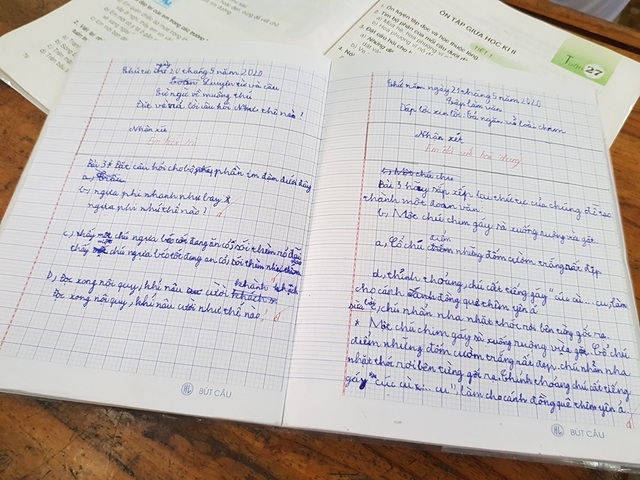 ÔN TẬP GIỮA HỌC KÌ II
TIẾT 1
Ôn luyện tập đọc và học thuộc lòng
27
Thứ tư ngày 20 tháng 5 năm 2020
Luyện từ và câu
Từ ngữ về muông thú
Đặt và trả lời câu hỏi Như thế nào?
Nhận xét
Bài 3: Đặt câu hỏi cho bộ phận in đậm dưới đây
a, Trâu
b, ngựa phi nhanh như bay
ngựa phi như thế nào?
c, thấy một chú ngựa béo tốt đang ăn cỏ, sói thèm rỏ dãi
thấy chú ngựa béo tốt đang ăn cỏ, sói thèm như thế nào
D, Đọc xong nội quy, khỉ nâu cười khành khạch
Đọc xong nội quy, khỉ nâu cười như thế nào?
BÚT CẦU
Thứ năm ngày 21 tháng 5 năm 2020
Tập làm văn
Đáp lời xin lỗi. Tả ngắn về loài chim
Nhận xét
b, Một chú chim
Bài 3 hãy sắp xếp lại thứ tự của chúng để tạo
thành một đoạn văn
b, Một chú chim gáy sà xuống ruộng vừa gặt.
a, Cổ chú điểm những đốm cườm trắng rất đẹp
d, thỉnh thoảng, chú cất tiếng gáy "cúc cù... cu", làm
cho cánh đồng quê thêm yên ả
c, chú nhẩn nha nhặt thóc rơi bên từng gốc rạ.
Một chú chim gáy sà xuống ruộng vừa gặt. Cổ chú
điểm những đốm cườm trắng rất đẹp. chú nhẩn nha
nhặt thóc rơi bên từng gốc rạ. Thỉnh thoảng chú cất tiếng
gáy "cúc cù... cu", làm cho cánh đồng quê thêm yên ả.
BÚT CẦU